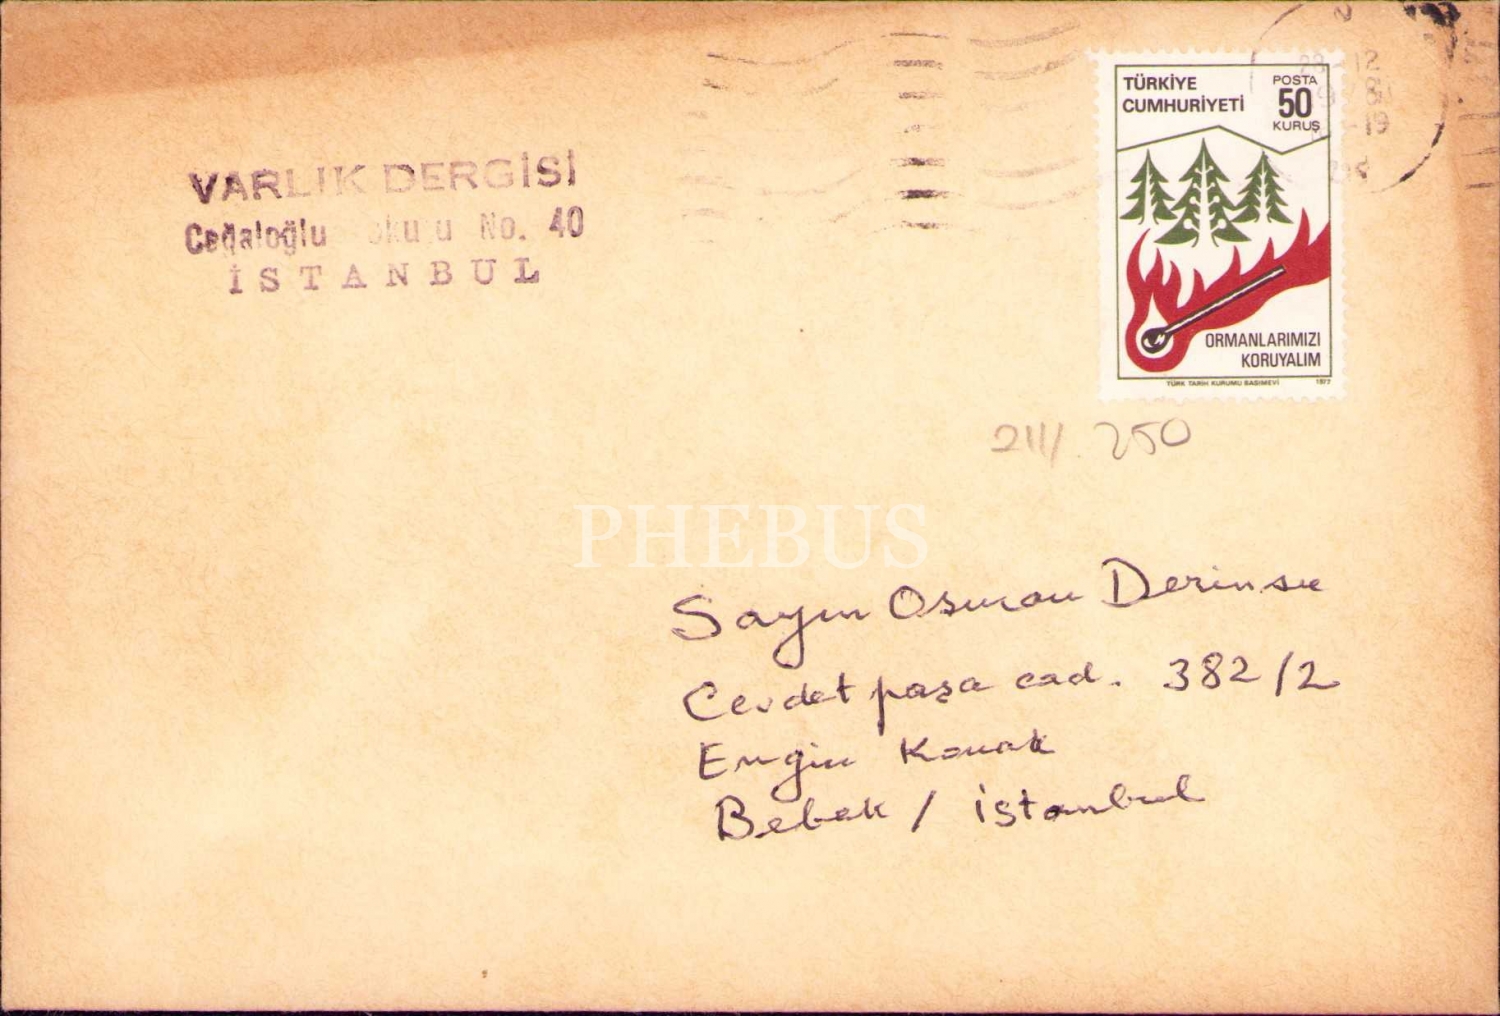 VARLIK DERGİSİ
Cağaloğlu No. 40
İSTANBUL
TÜRKİYE
CUMHURİYETİ
POSTA
50
KURUŞ
ORMANLARIMIZI
KORUYALIM
TÜRK TARİH KURUMU BASIMEVİ 1977
12
19
211/. 250
PHEBUS
Sayın Osman Derinsu
Cevdet paşa cad. 382/2
Engin Konak
Bebek / İstanbul